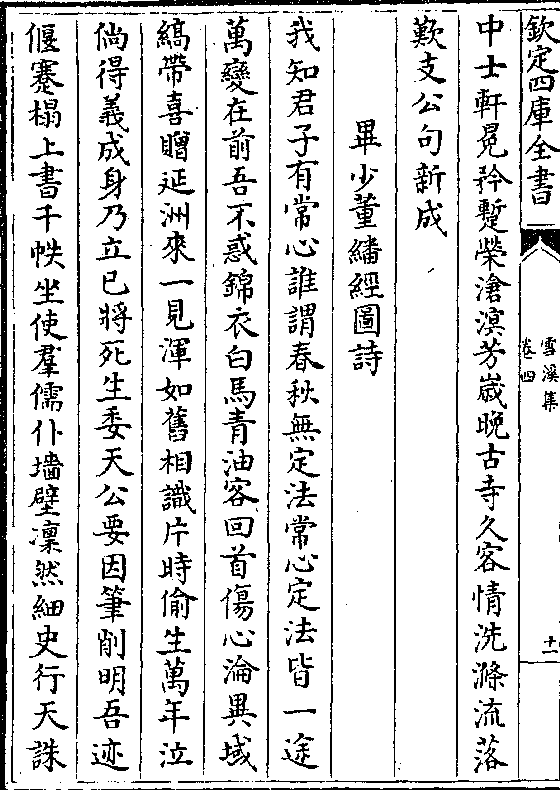 欽定四庫全書
雪溪集
卷四
十一
中士軒冕矜蹔榮滄溟芳嵗晚古寺久客情洗滌流落
歎支公句新成
畢少董繙經圖詩
我知君子有常心誰謂春秋無定法常心定法皆一途
萬變在前吾不惑錦衣白馬青油客回首傷心淪異域
縞帶喜贈延洲來一見渾如舊相識片時偷生萬年泣
倘得義成身乃立已將死生委天公要因筆削明吾迹
偃蹇榻上書千帙坐使羣儒仆墻壁凜然細史行天誅